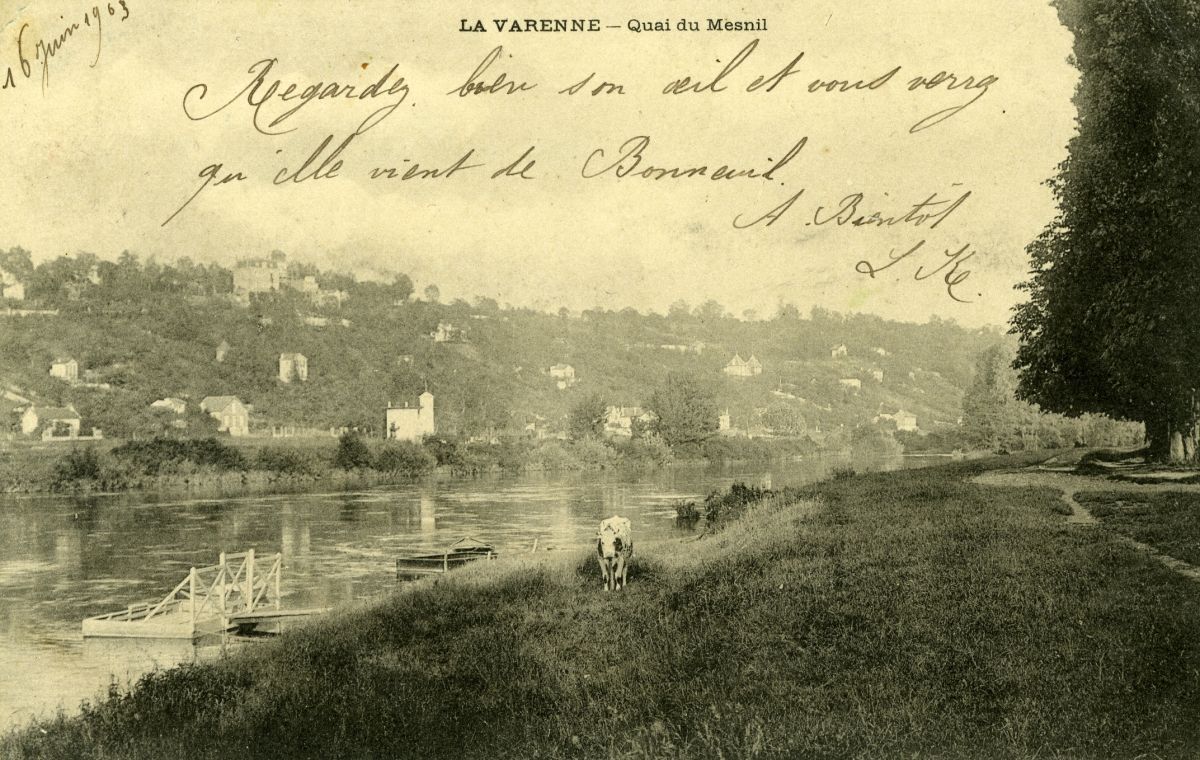 16 Juin 1903
LA VARENNE — Quai du Mesnil
Regardez bien son œil et vous verrez
qu'elle vient de Bonneuil.
A Bientôt
L. K.